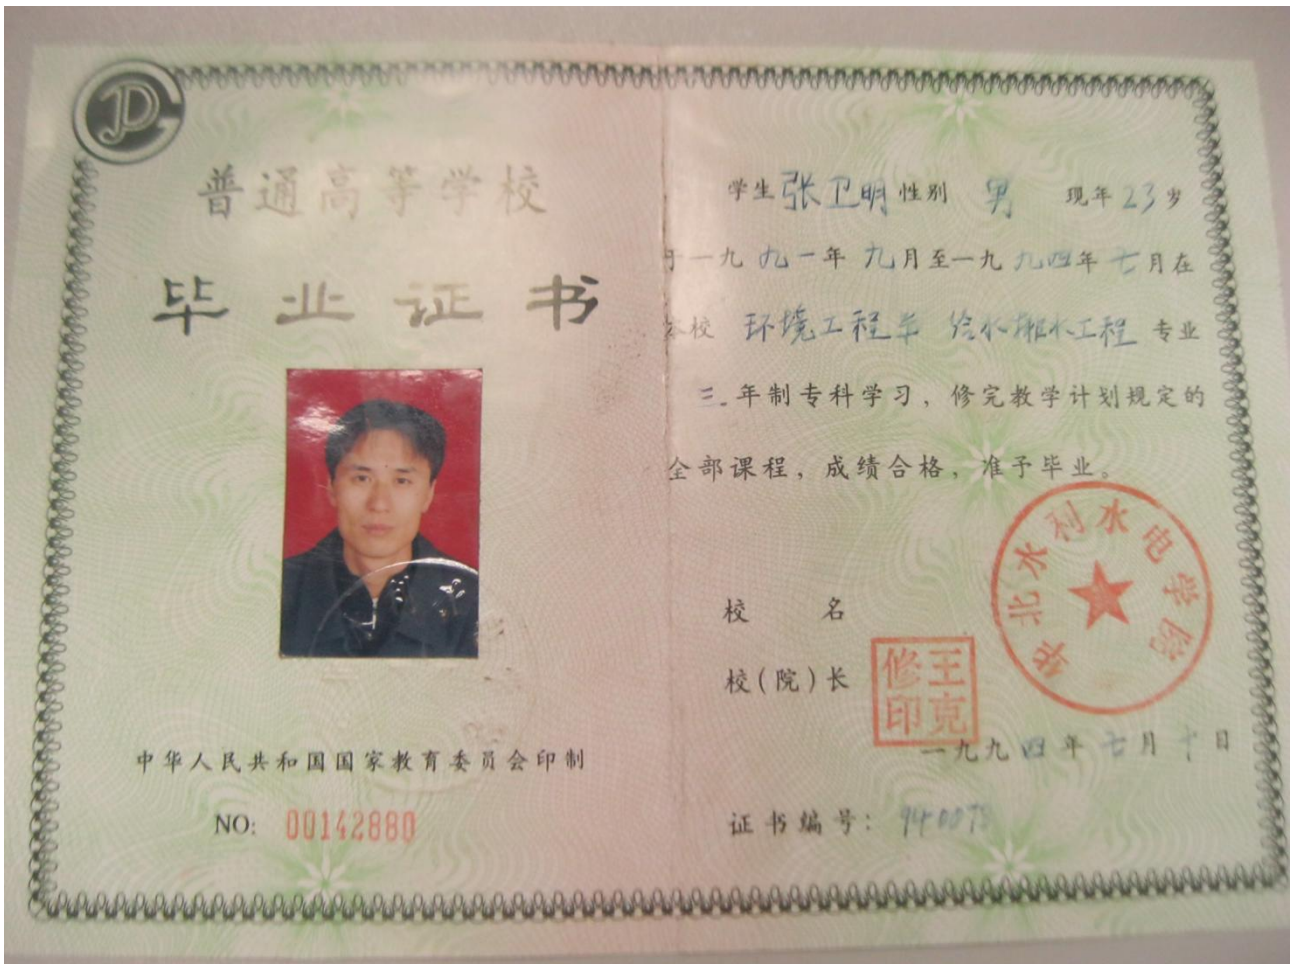 普通高等学校
毕业证书
中华人民共和国国家教育委员会印制
NO: 00142880
学生 张卫明 性别 男 现年 23 岁
于一九九一年九月至一九九四年七月在
本校 环境工程 给水排水工程 专业
三年制专科学习，修完教学计划规定的
全部课程，成绩合格，准予毕业。
华北水利水电学院
校 名
校(院)长
王克修印
一九九四年七月十日
证书编号： 940078